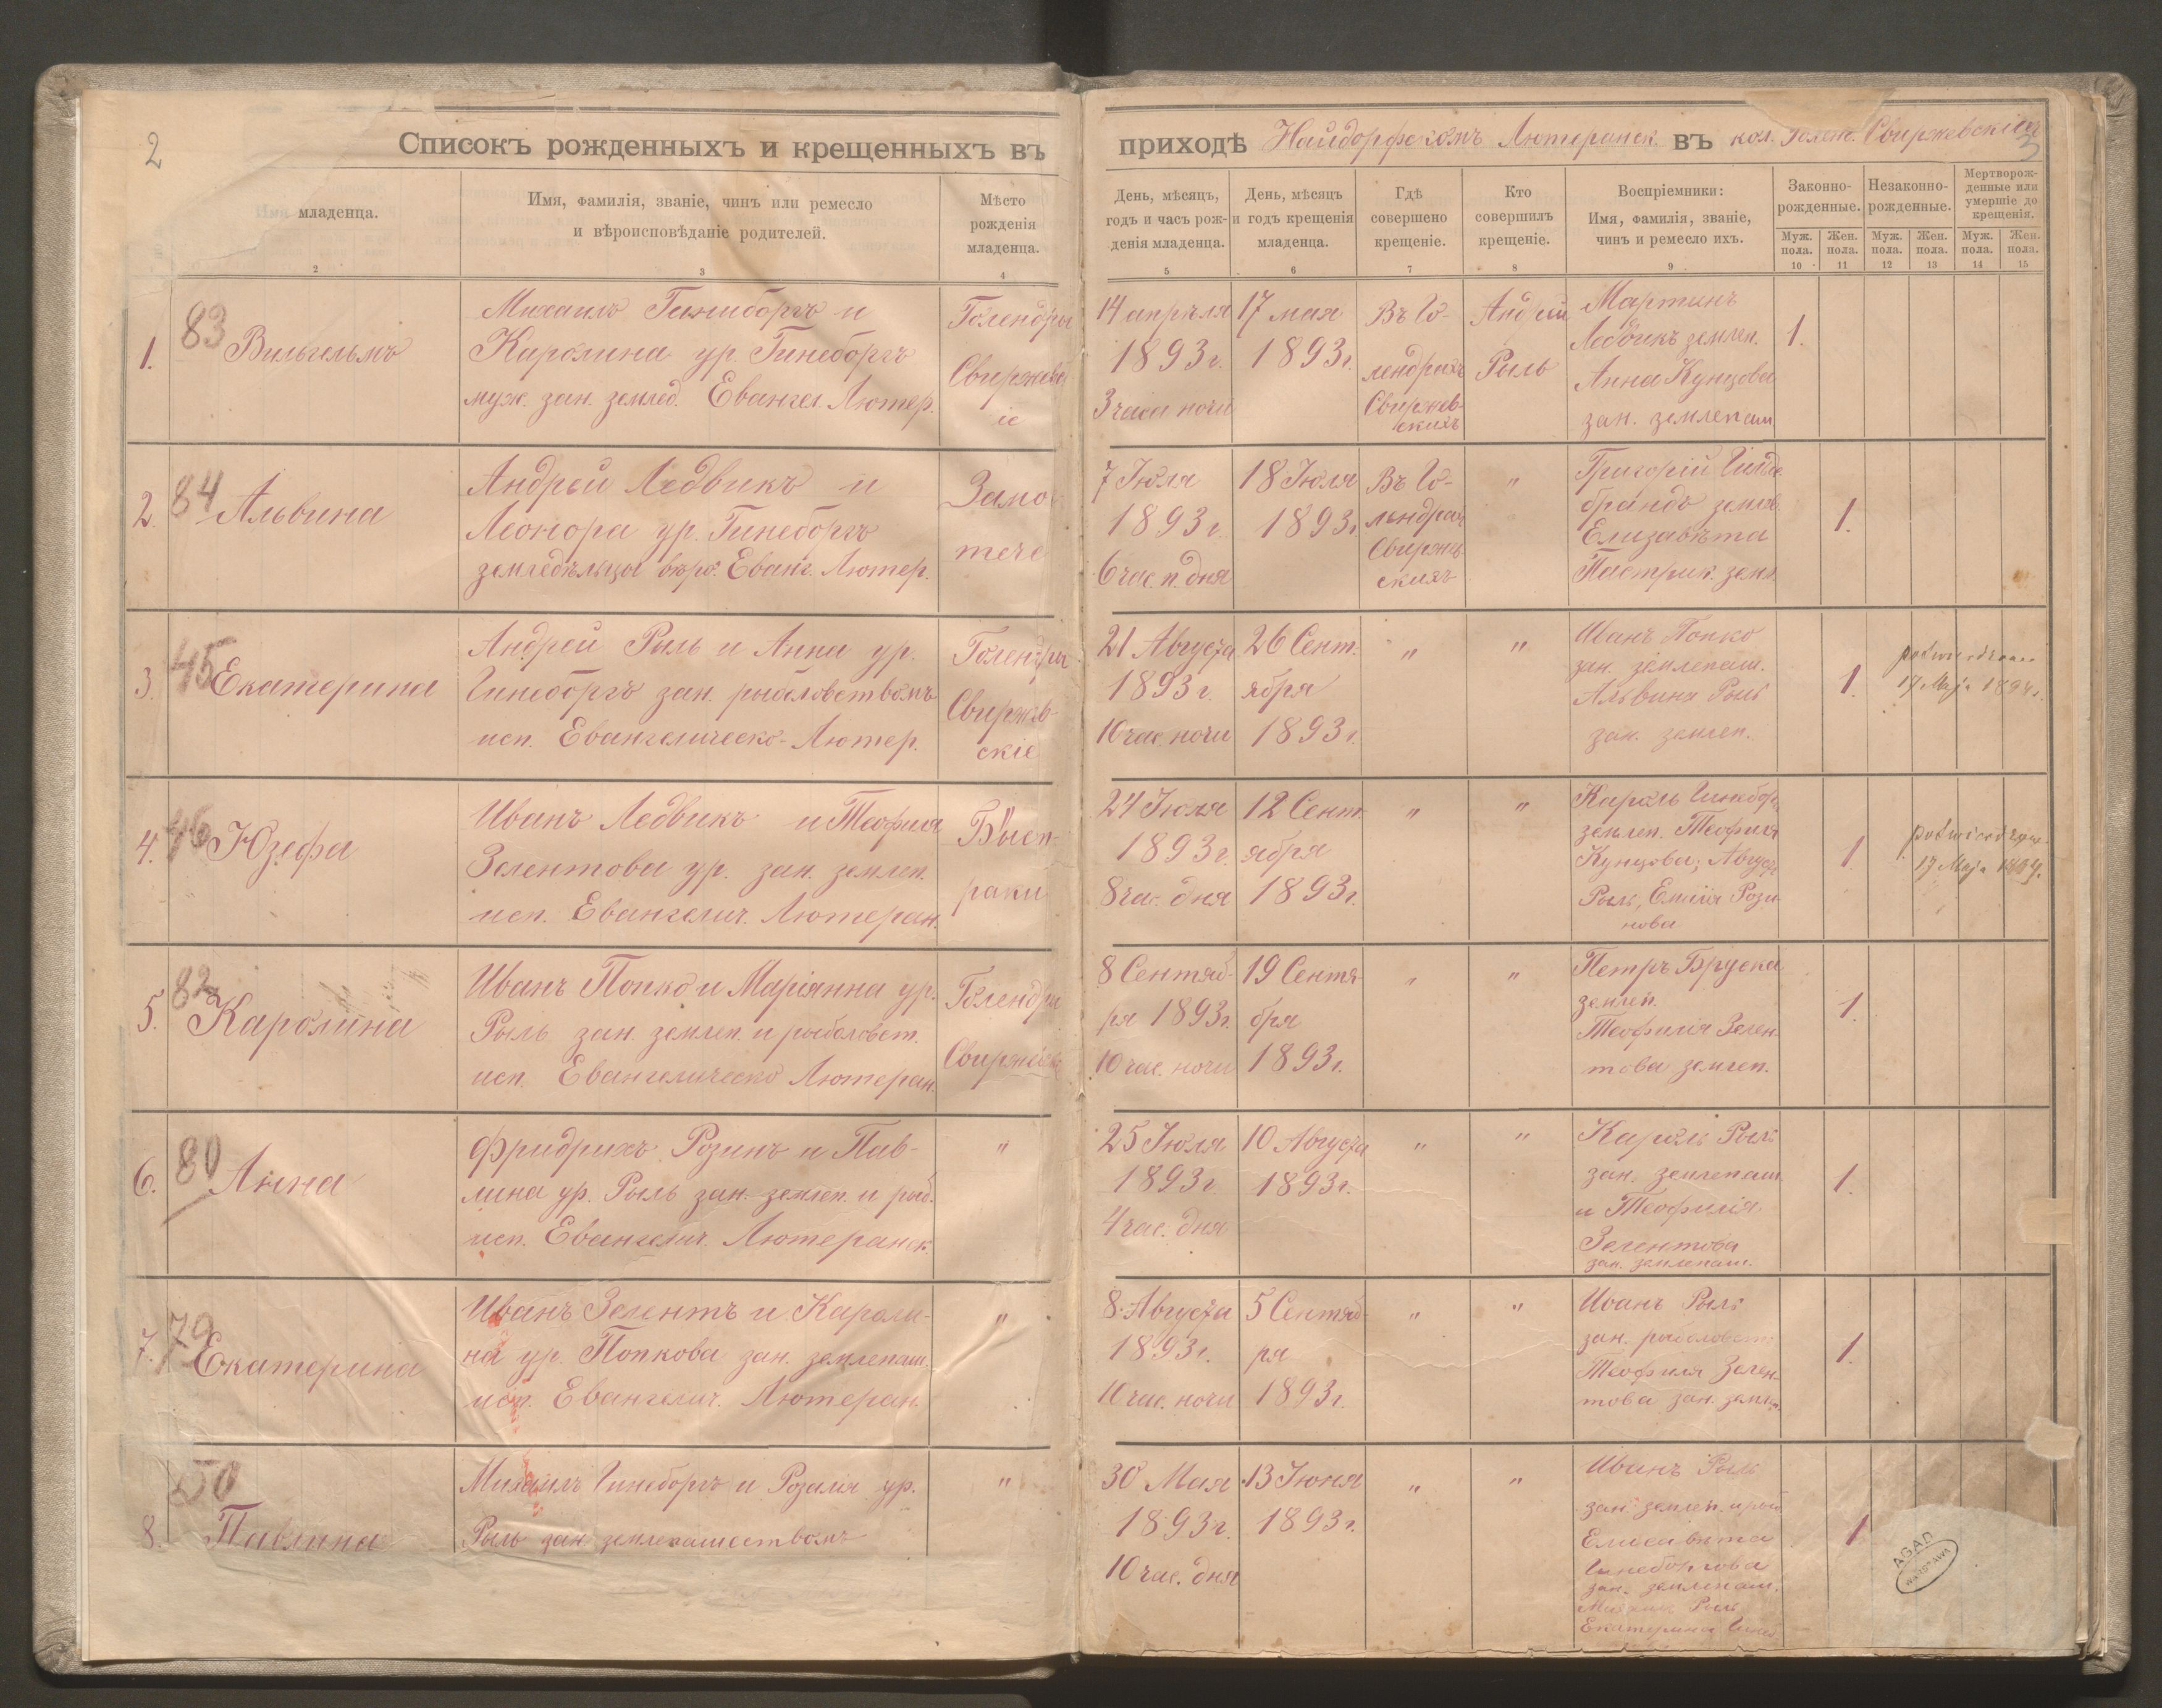 2
Списокъ рожденныхъ и крещенныхъ въ
младенца.
Имя, фамилія, званіе, чинъ или ремесло
и вѣроисповѣданіе родителей.
Мѣсто
рожденія
младенца.
2
3
4
1.
83
Вильгельмъ
Михаилъ Гинеборгъ и
Каролина ур. Гинеборгъ
муж. зан. землед. Евангел. Лютер.
Голендры
Свиржевск
іе
2.
84
Альвина
Андрей Ледвикъ и
Леонора ур. Гинеборгъ
земледѣльцы вѣро. Еванг. Лютер.
3.
45
Екатерина
Андрей Рыль и Анна ур.
Гинеборгъ зан. рыболовствомъ
исп. Евангелическо-Лютер.
Голендры
Свиржев-
скіе
4.
46
Юзефа
Иванъ Ледвикъ и Теофиля
Зелентова ур. зан. землеп.
исп. Евангелич. Лютеран.
5.
82
Каролина
Иванъ Попко и Маріянна ур.
Рыль зан. землеп. и рыболовст.
исп. Евангелическо Лютеран.
Голендры
Свиржевс
6.
80
Анна
Фридрихъ Розинъ и Пав-
лина ур. Рыль зан. землеп. и рыб.
исп. Евангелич. Лютеранск.
"
7.
79
Екатерина
Иванъ Зелентъ и Кароли-
на ур. Попкова зан. землепаш.
исп. Евангелич. Лютеран.
"
8.
50
Павлина
Михаилъ Гинеборгъ и Розалія ур.
Рыль зан. землепашествомъ
"
приходѣ Найдорфскомъ Лютеранск. въ кол. Голен. Свиржевскіхъ
3
День, мѣсяцъ,
годъ и часъ рож-
денія младенца.
День, мѣсяцъ
и годъ крещенія
младенца.
Гдѣ
совершено
крещеніе.
Кто
совершилъ
крещеніе.
Воспріемники:
Имя, фамилія, званіе,
чинъ и ремесло ихъ.
Законно-
рожденные.
Незаконно-
рожденные.
Мертворож-
денные или
умершіе до
крещенія.
Муж. пола.
Жен. пола.
Муж. пола.
Жен. пола.
Муж. пола.
Жен. пола.
5
6
7
8
9
10
11
12
13
14
15
14 апрѣля
1893 г.
3 часа ночи
17 мая
1893 г.
Въ Го-
лендрахъ
Свиржев-
скихъ
Андрей
Рыль
Мартинъ
Ледвикъ землеп.
Анна Кунцова
зан. землепаш
1.
7 Іюля
1893 г.
6 час. п. дня
18 Іюля
1893 г.
Въ Го-
лендрах
Свиржев
скихъ
"
Григорій Гильде
брандъ землп.
Елизавѣта
Пастрик. земл.
1.
21 Августа
1893 г.
10 час. ночи
26 Сент.
ября
1893 г.
"
"
Иванъ Попко
зан. землепаш.
Альвина Рыль
зан. землеп.
1.
17 Maja
24 Іюля
1893 г.
8 час. дня
12 Сент.
ября
1893 г.
"
"
Кароль Гинебор.
землеп. Теофиля
Кунцова; Август
Рыль, Емилія Рози
нова
1
17 Maja
8 Сентяб-
ря 1893 г.
10 час. ночи
19 Сентя-
бря
1893 г.
"
"
Петръ Бруска
землеп.
Теофилія Зелен-
това землеп.
1.
25 Іюля
1893 г.
4 час. дня
10 Августа
1893 г.
"
"
Кароль Рыль
зан. землепаш.
и Теофилія
Зелентова
зан. землепаш.
1.
8 Августа
1893 г.
10 час. ночи
5 Сентяб-
ря
1893 г.
"
"
Иванъ Рыль
зан. рыболовст.
Теофиля Зелен-
това зан. землп.
1.
30 Мая
1893 г.
10 час. дня
13 Іюня
1893 г.
"
"
Иванъ Рыль
зан. землеп. и рыб
Елисавѣта
Гинеборгова
зан. землепаш.
Рыль
Екатерина Гинеб
1
AGAD
WARSZAWA